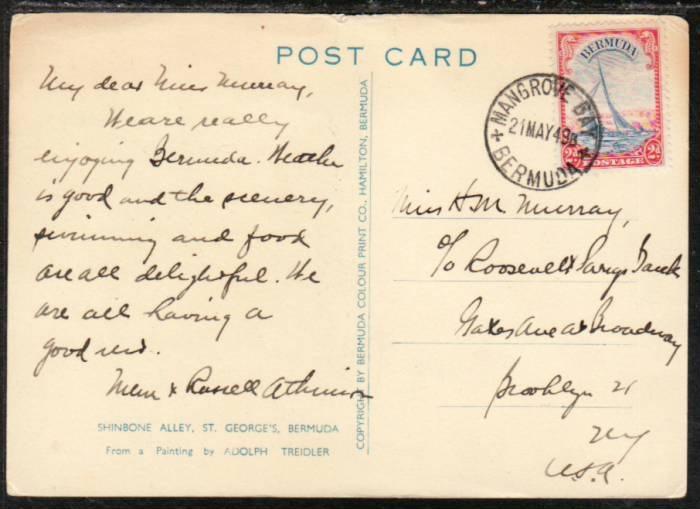 POST CARD
My dear Miss Murray,
We are really
enjoying Bermuda. Weather
is good and the scenery,
swimming and food
are all delightful. We
are all having a
good
& Russell Atkinson
SHINBONE ALLEY, ST. GEORGE'S, BERMUDA
From a Painting by ADOLPH TREIDLER
COPYRIGHT BY BERMUDA COLOUR PRINT CO., HAMILTON, BERMUDA
BERMUDA
2d POSTAGE 2d
MANGROVE BAY
21 MAY 49
BERMUDA
Miss H.M. Murray,
c/o Roosevelt Savgs Bank
Gates Ave at Broadway
Brooklyn 21
NY
U.S.A.